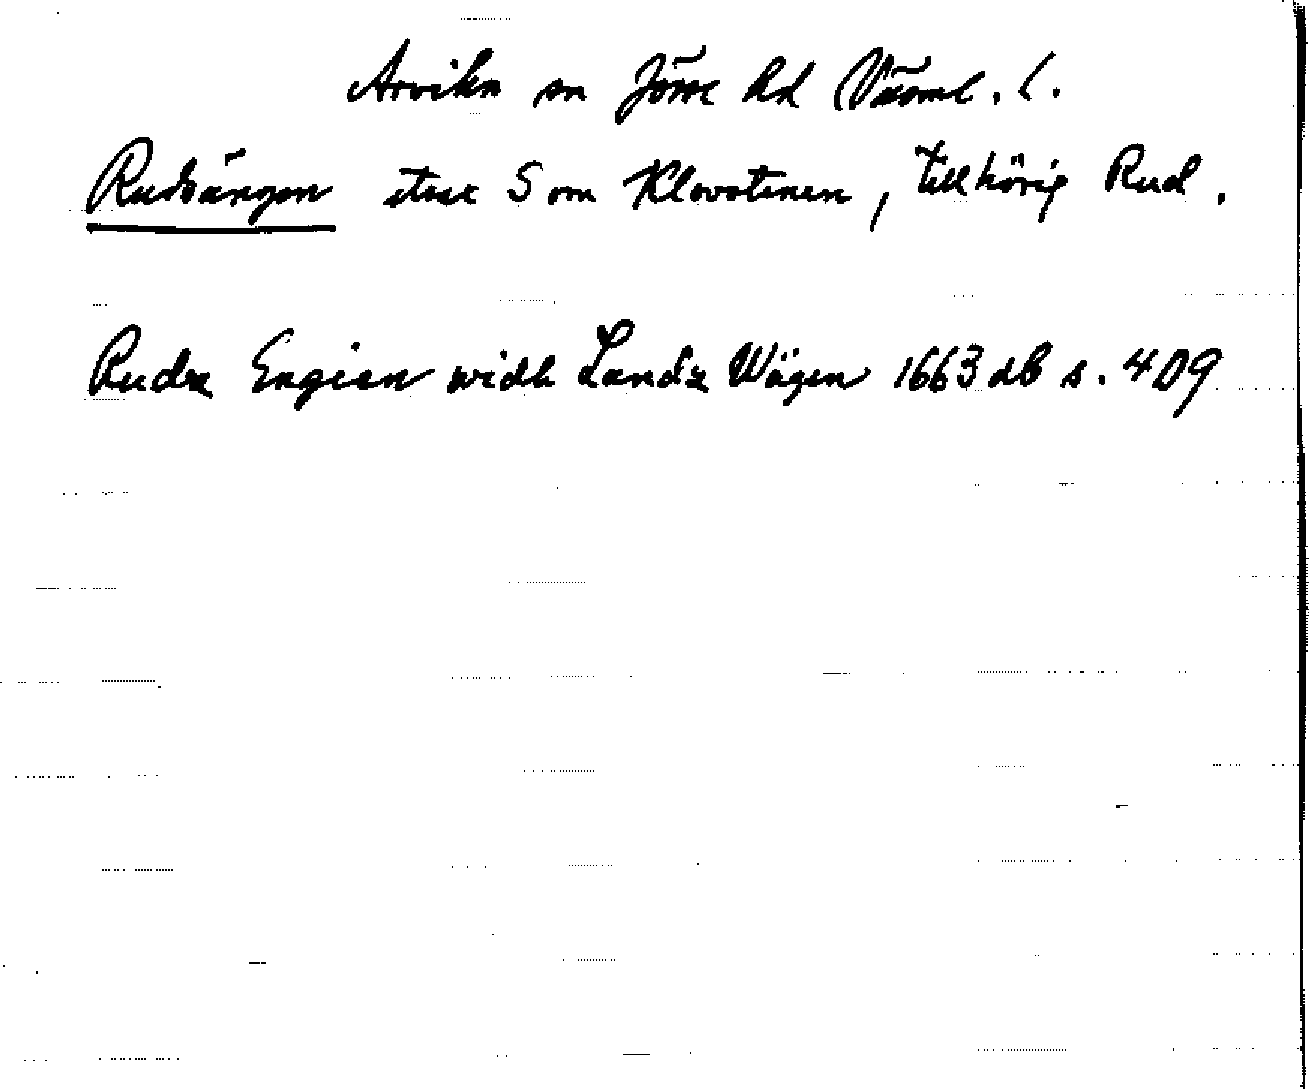 Arvika sn Jösse hd Värml. l.
Rudsängen strax S om Klovstenen, tillhörig Rud.
Rudz Engien widh Landz Wägen 1663 db s. 409